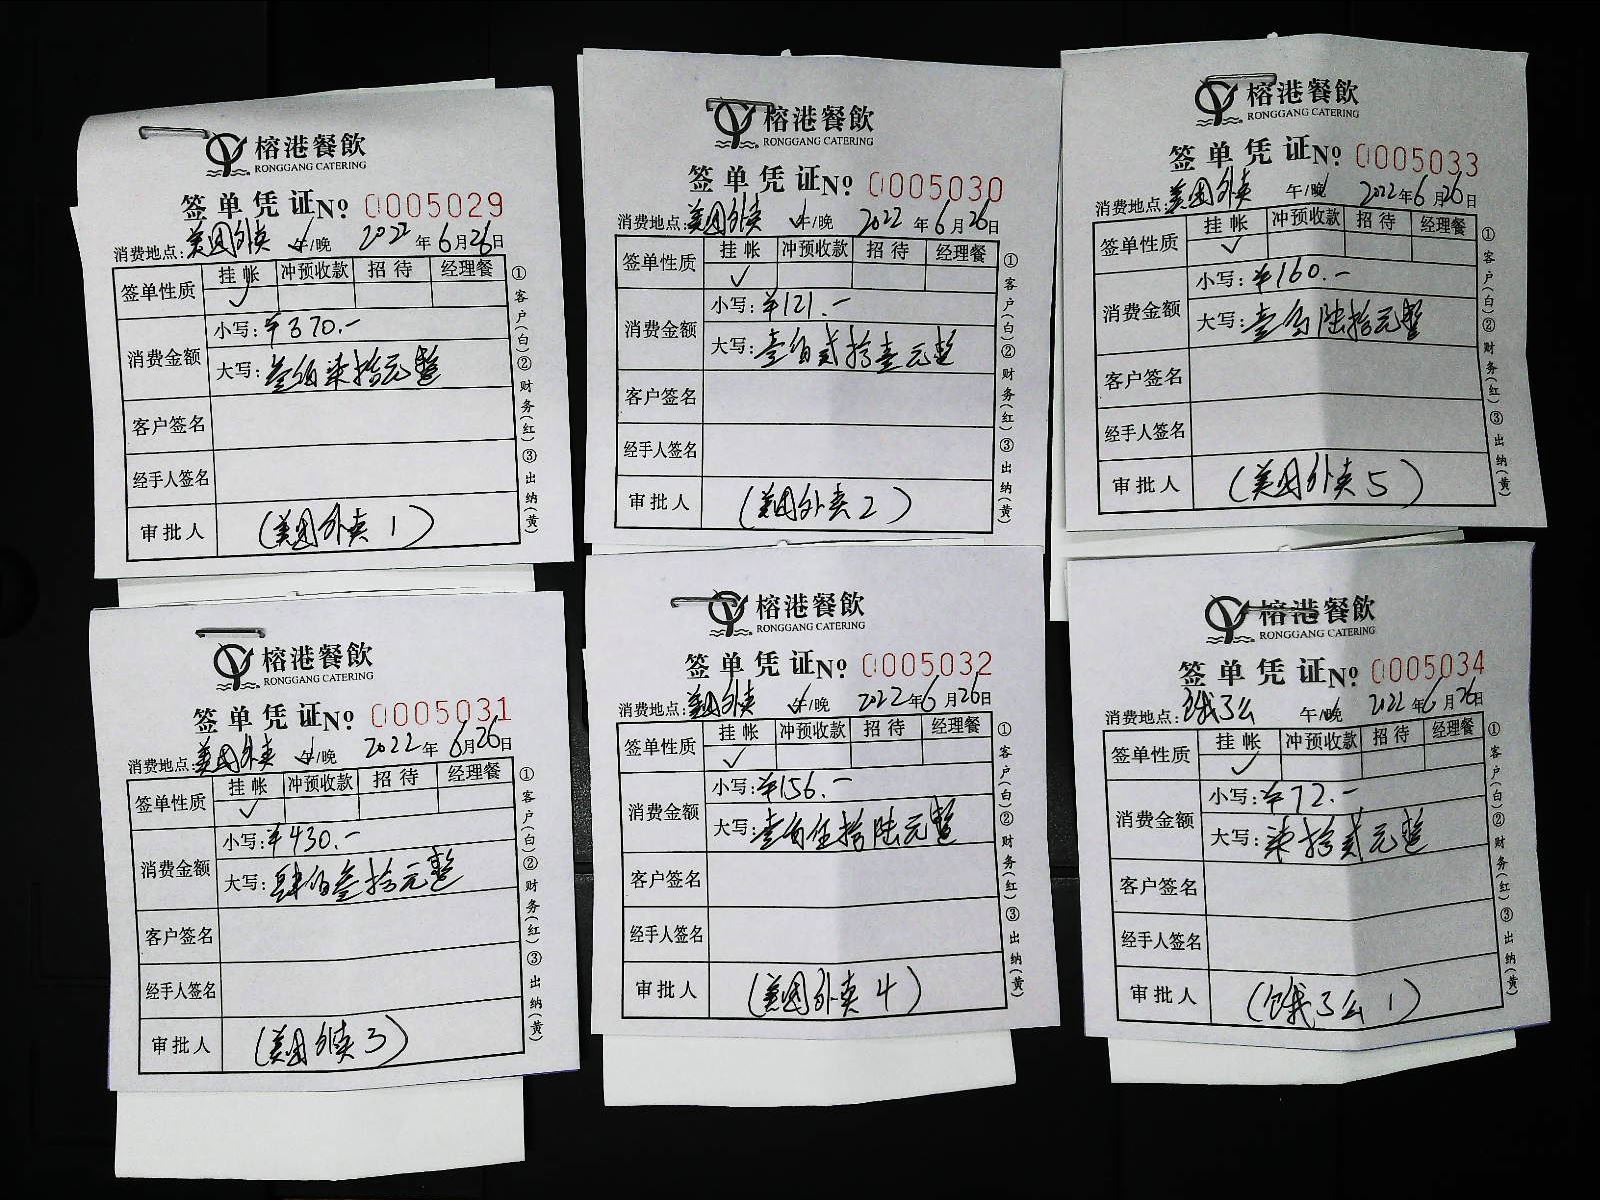 榕港餐飲
RONGGANG CATERING
签单凭证 No 0005029
消费地点:美团外卖 午/晚 2022年6月26日
签单性质 挂帐 冲预收款 招待 经理餐
✓
消费金额 小写:¥370.-
大写:叁佰柒拾元整
客户签名
经手人签名
审批人 (美团外卖1)
①客户(白)②财务(红)③出纳(黄)
榕港餐飲
RONGGANG CATERING
签单凭证 No 0005030
消费地点:美团外卖 午/晚 2022年6月26日
签单性质 挂帐 冲预收款 招待 经理餐
✓
消费金额 小写:¥121.-
大写:壹佰贰拾壹元整
客户签名
经手人签名
审批人 (美团外卖2)
①客户(白)②财务(红)③出纳(黄)
榕港餐飲
RONGGANG CATERING
签单凭证 No 0005033
消费地点:美团外卖 午/晚 2022年6月26日
签单性质 挂帐 冲预收款 招待 经理餐
✓
消费金额 小写:¥160.-
大写:壹佰陆拾元整
客户签名
经手人签名
审批人 (美团外卖5)
①客户(白)②财务(红)③出纳(黄)
榕港餐飲
RONGGANG CATERING
签单凭证 No 0005031
消费地点:美团外卖 午/晚 2022年6月26日
签单性质 挂帐 冲预收款 招待 经理餐
✓
消费金额 小写:¥430.-
大写:肆佰叁拾元整
客户签名
经手人签名
审批人 (美团外卖3)
①客户(白)②财务(红)③出纳(黄)
榕港餐飲
RONGGANG CATERING
签单凭证 No 0005032
消费地点:美团外卖 午/晚 2022年6月26日
签单性质 挂帐 冲预收款 招待 经理餐
✓
消费金额 小写:¥156.-
大写:壹佰伍拾陆元整
客户签名
经手人签名
审批人 (美团外卖4)
①客户(白)②财务(红)③出纳(黄)
榕港餐飲
RONGGANG CATERING
签单凭证 No 0005034
消费地点:饿了么 午/晚 2022年6月26日
签单性质 挂帐 冲预收款 招待 经理餐
✓
消费金额 小写:¥72.-
大写:柒拾贰元整
客户签名
经手人签名
审批人 (饿了么1)
①客户(白)②财务(红)③出纳(黄)